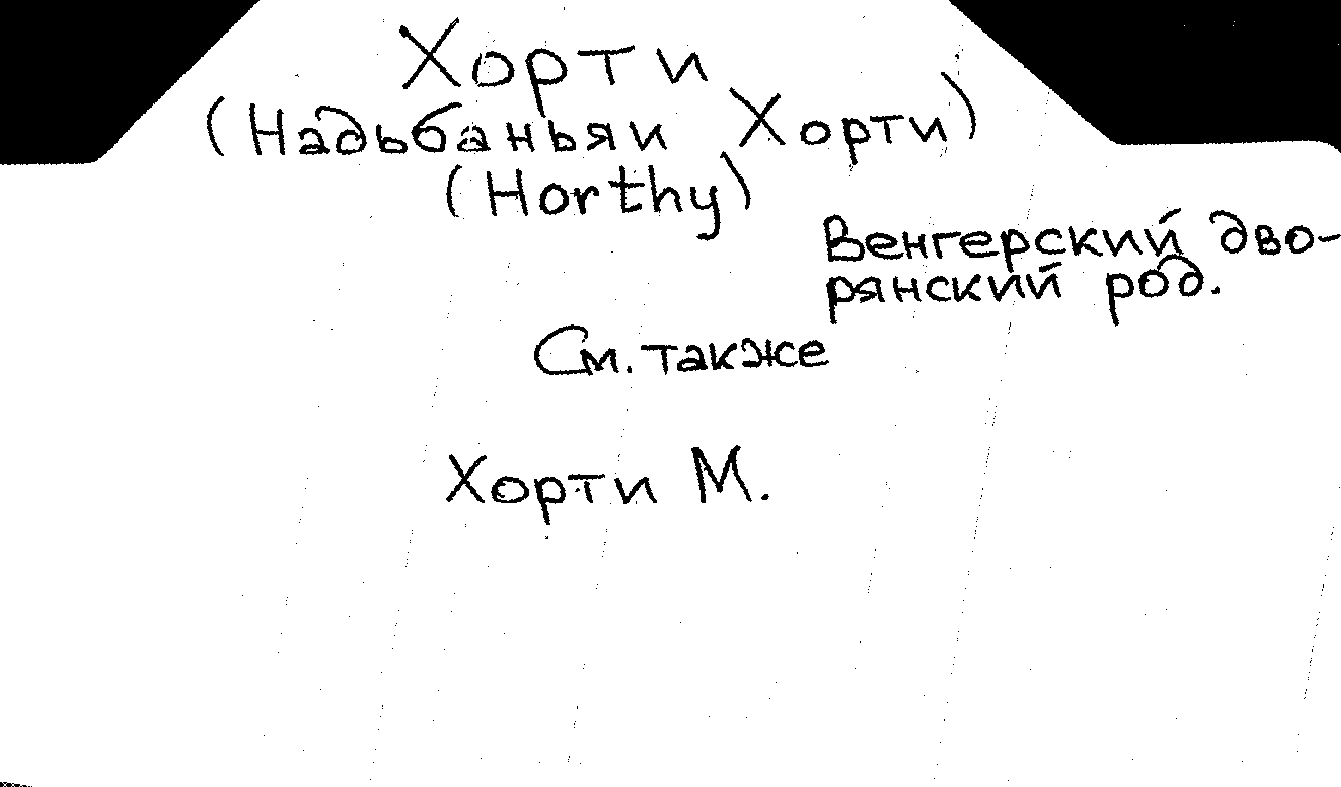 Хорти
(Надьбаньяи Хорти)
(Horthy)
Венгерский дво-
рянский род.
См. также
Хорти М.